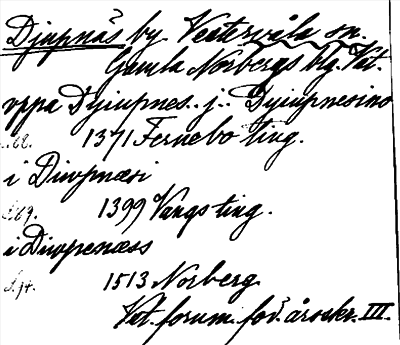 Djupnäs by Vestervåla sn.
Gamla Norbergs blg. Vät.
uppa Dyiupnes. j. Dyiupnesino
S. 68. 1371 Fernebo ting.
i Diwpnæsi
S. 69. 1399 Vangsting.
i Diwpenæss
S. 74. 1513 Norberg
Vät. fornm. för. årsskr. III.